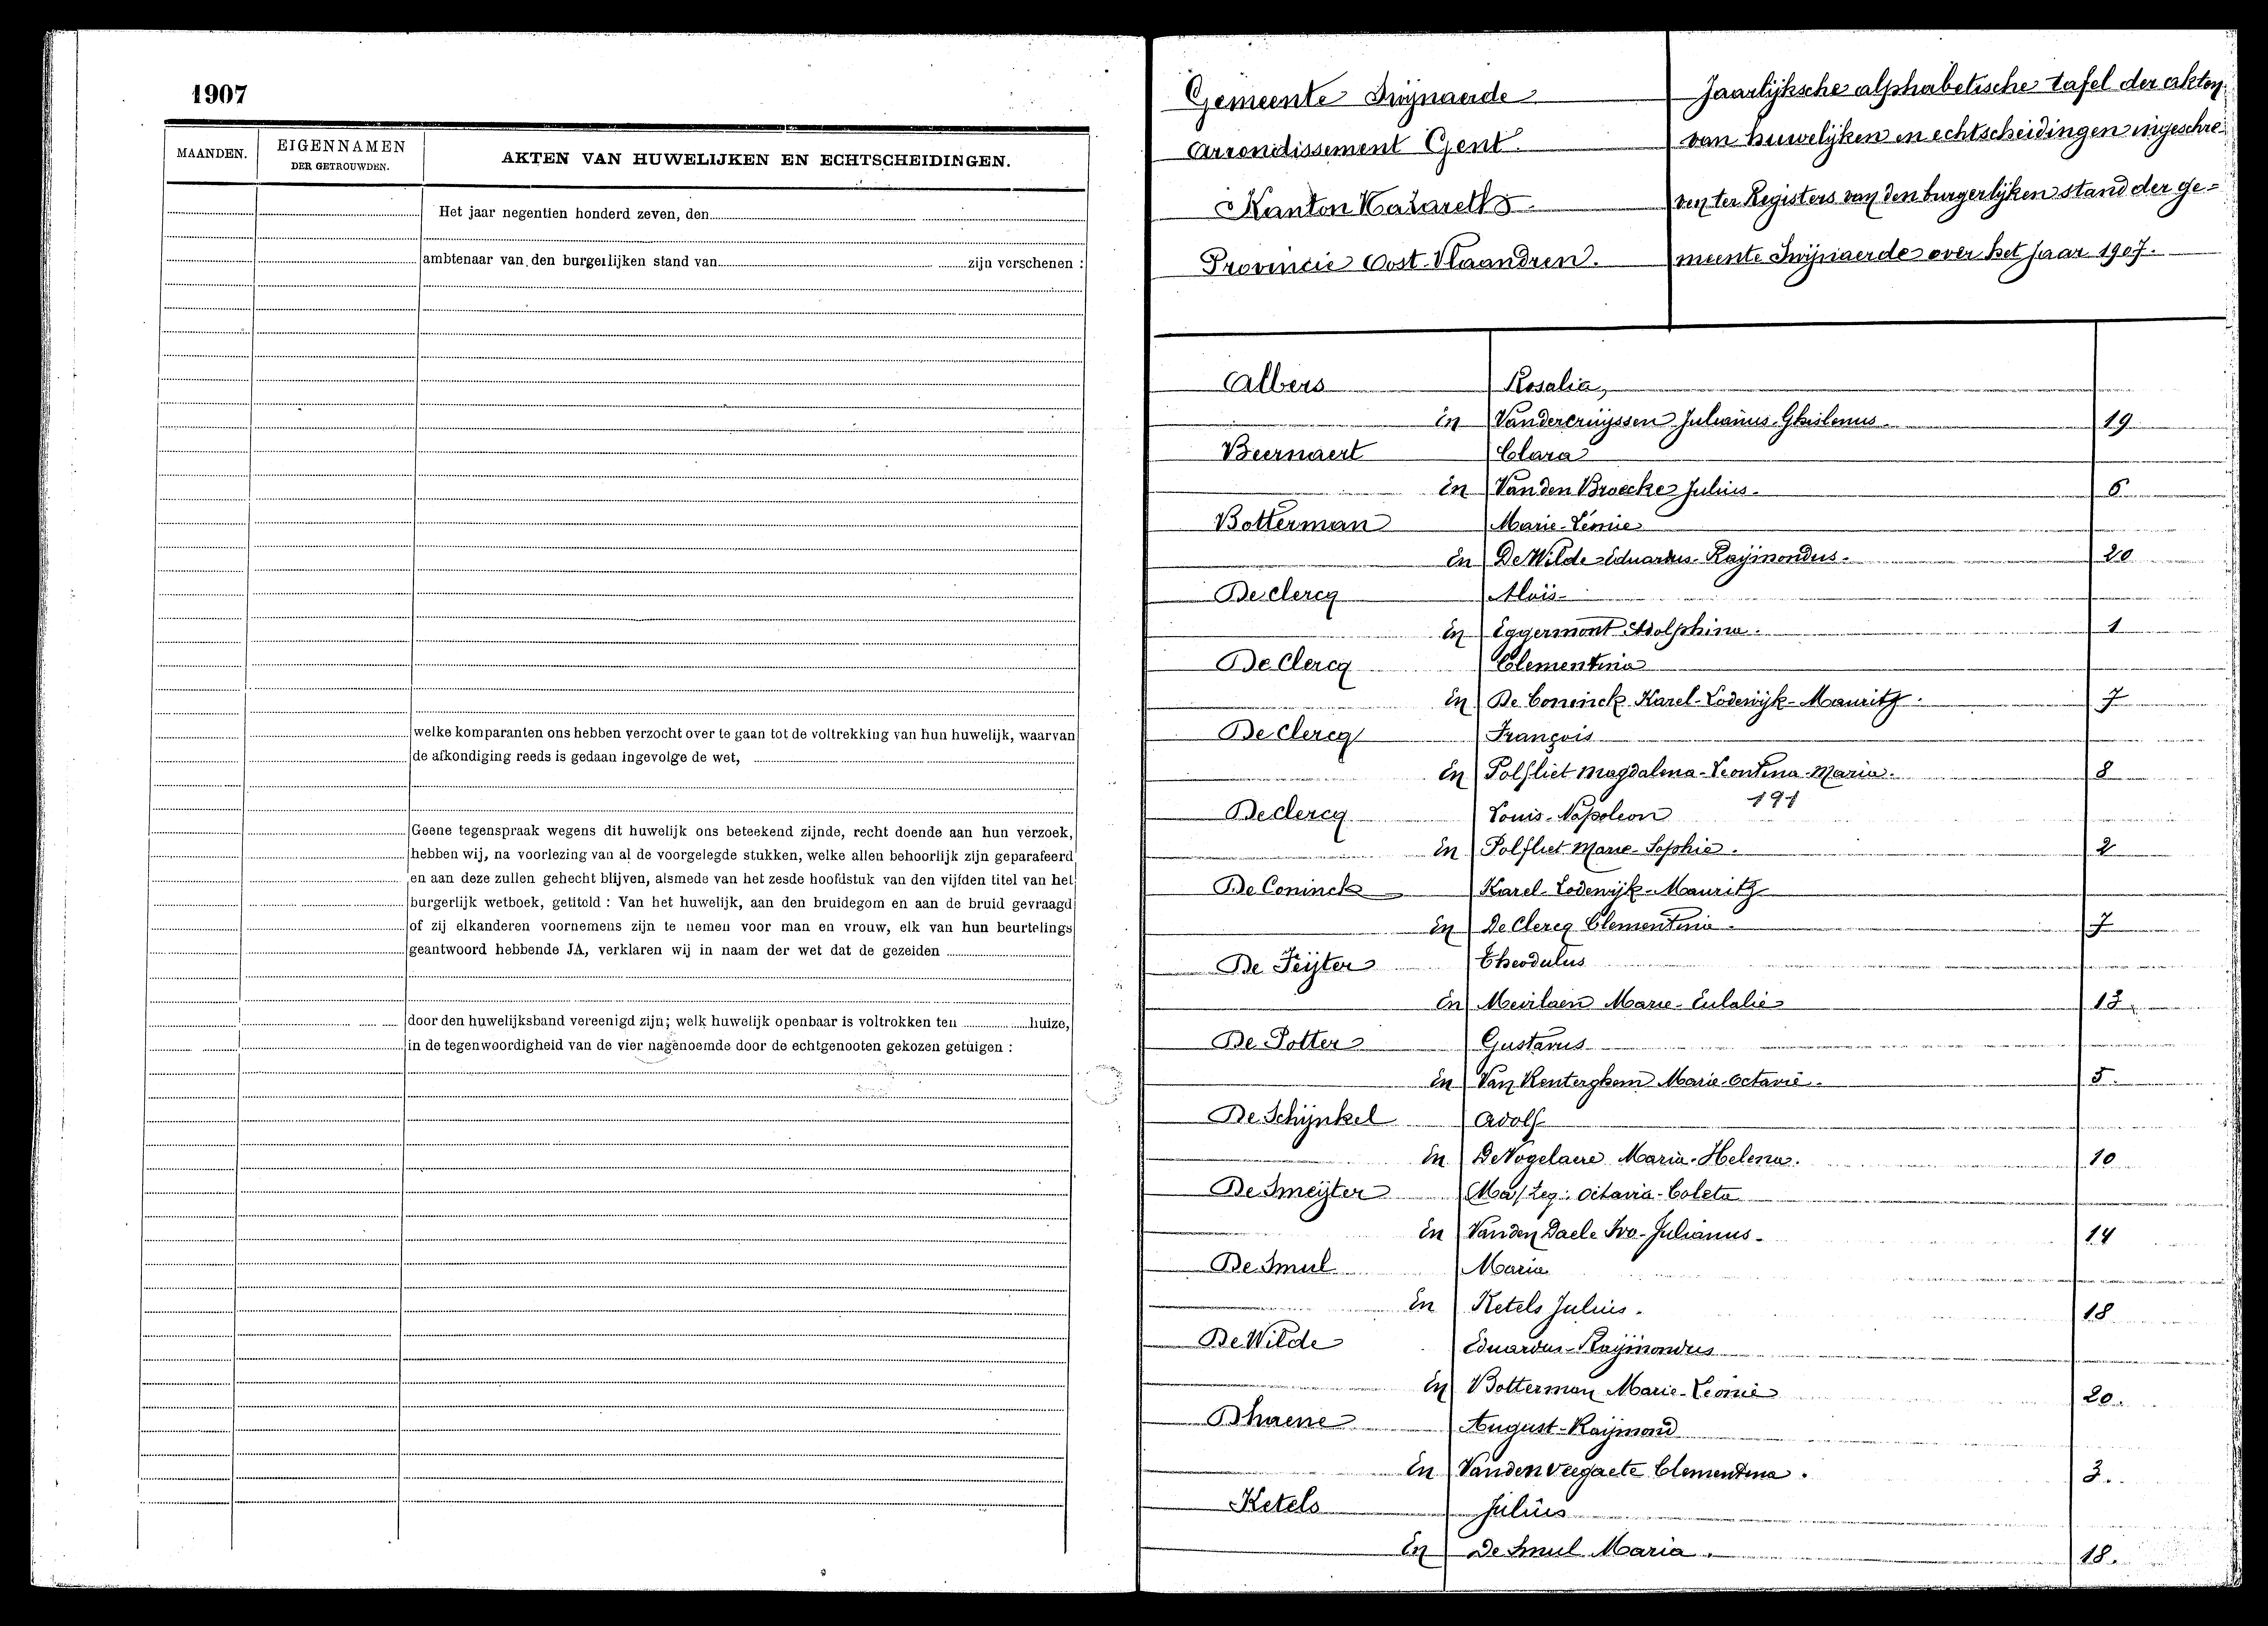 1907
MAANDEN.
EIGENNAMEN
DER GETROUWDEN.
AKTEN VAN HUWELIJKEN EN ECHTSCHEIDINGEN.
Het jaar negentien honderd zeven, den
ambtenaar van den burgerlijken stand van zijn verschenen :
welke komparanten ons hebben verzocht over te gaan tot de voltrekking van hun huwelijk, waarvan
de afkondiging reeds is gedaan ingevolge de wet,
Geene tegenspraak wegens dit huwelijk ons beteekend zijnde, recht doende aan hun verzoek,
hebben wij, na voorlezing van al de voorgelegde stukken, welke allen behoorlijk zijn geparafeerd
en aan deze zullen gehecht blijven, alsmede van het zesde hoofdstuk van den vijfden titel van het
burgerlijk wetboek, getiteld : Van het huwelijk, aan den bruidegom en aan de bruid gevraagd
of zij elkanderen voornemens zijn te nemen voor man en vrouw, elk van hun beurtelings
geantwoord hebbende JA, verklaren wij in naam der wet dat de gezeiden
door den huwelijksband vereenigd zijn; welk huwelijk openbaar is voltrokken ten huize,
in de tegenwoordigheid van de vier nagenoemde door de echtgenooten gekozen getuigen :
Gemeente Swijnaerde
Arrondissement Gent.
Kanton Nazareth
Provincie Oost-Vlaandren.
Jaarlijksche alphabetische tafel der akten
van huwelijken en echtscheidingen ingeschre-
ven ter Registers van den burgerlijken stand der ge=
meente Swijnaerde over het jaar 1907.
Albers Rosalia,
En Vandercruijssen Julianus-Ghislenus. 19
Beernaert Clara
En Van den Broecke Julius. 6
Botterman Marie-Léonie
En De Wilde Eduardus-Raijmondus. 20
De clercq Aloïs
En Eggermont Adolphina. 1
De Clercq Clementina
En De Coninck Karel-Lodewijk-Mauritz. 7
De Clercq François
En Polfliet Magdalena-Leontina-Maria. 8
191
De clercq Louis-Napoleon
En Polfliet Marie-Sophie. 2
De Coninck Karel-Lodewijk-Mauritz
En De Clercq Clementina. 7
De Feijter Theodulus
En Meirlaen Marie-Eulalie 13
De Potter Gustavus
En Van Renterghem Marie-Octavie. 5.
De Schijnkel Adolf
En De Vogelaere Maria-Helena. 10
De Smeijter Octavia-Coleta
En Vanden Daele Ivo-Julianus. 14
De Smul Maria
En Ketels Julius. 18
De Wilde Eduardus-Raijmondus
En Botterman Marie-Leonie 20.
Dhaene August-Raijmond
En Vanden veegaete Clementina. 3.
Ketels Julius
En De Smul Maria. 18.